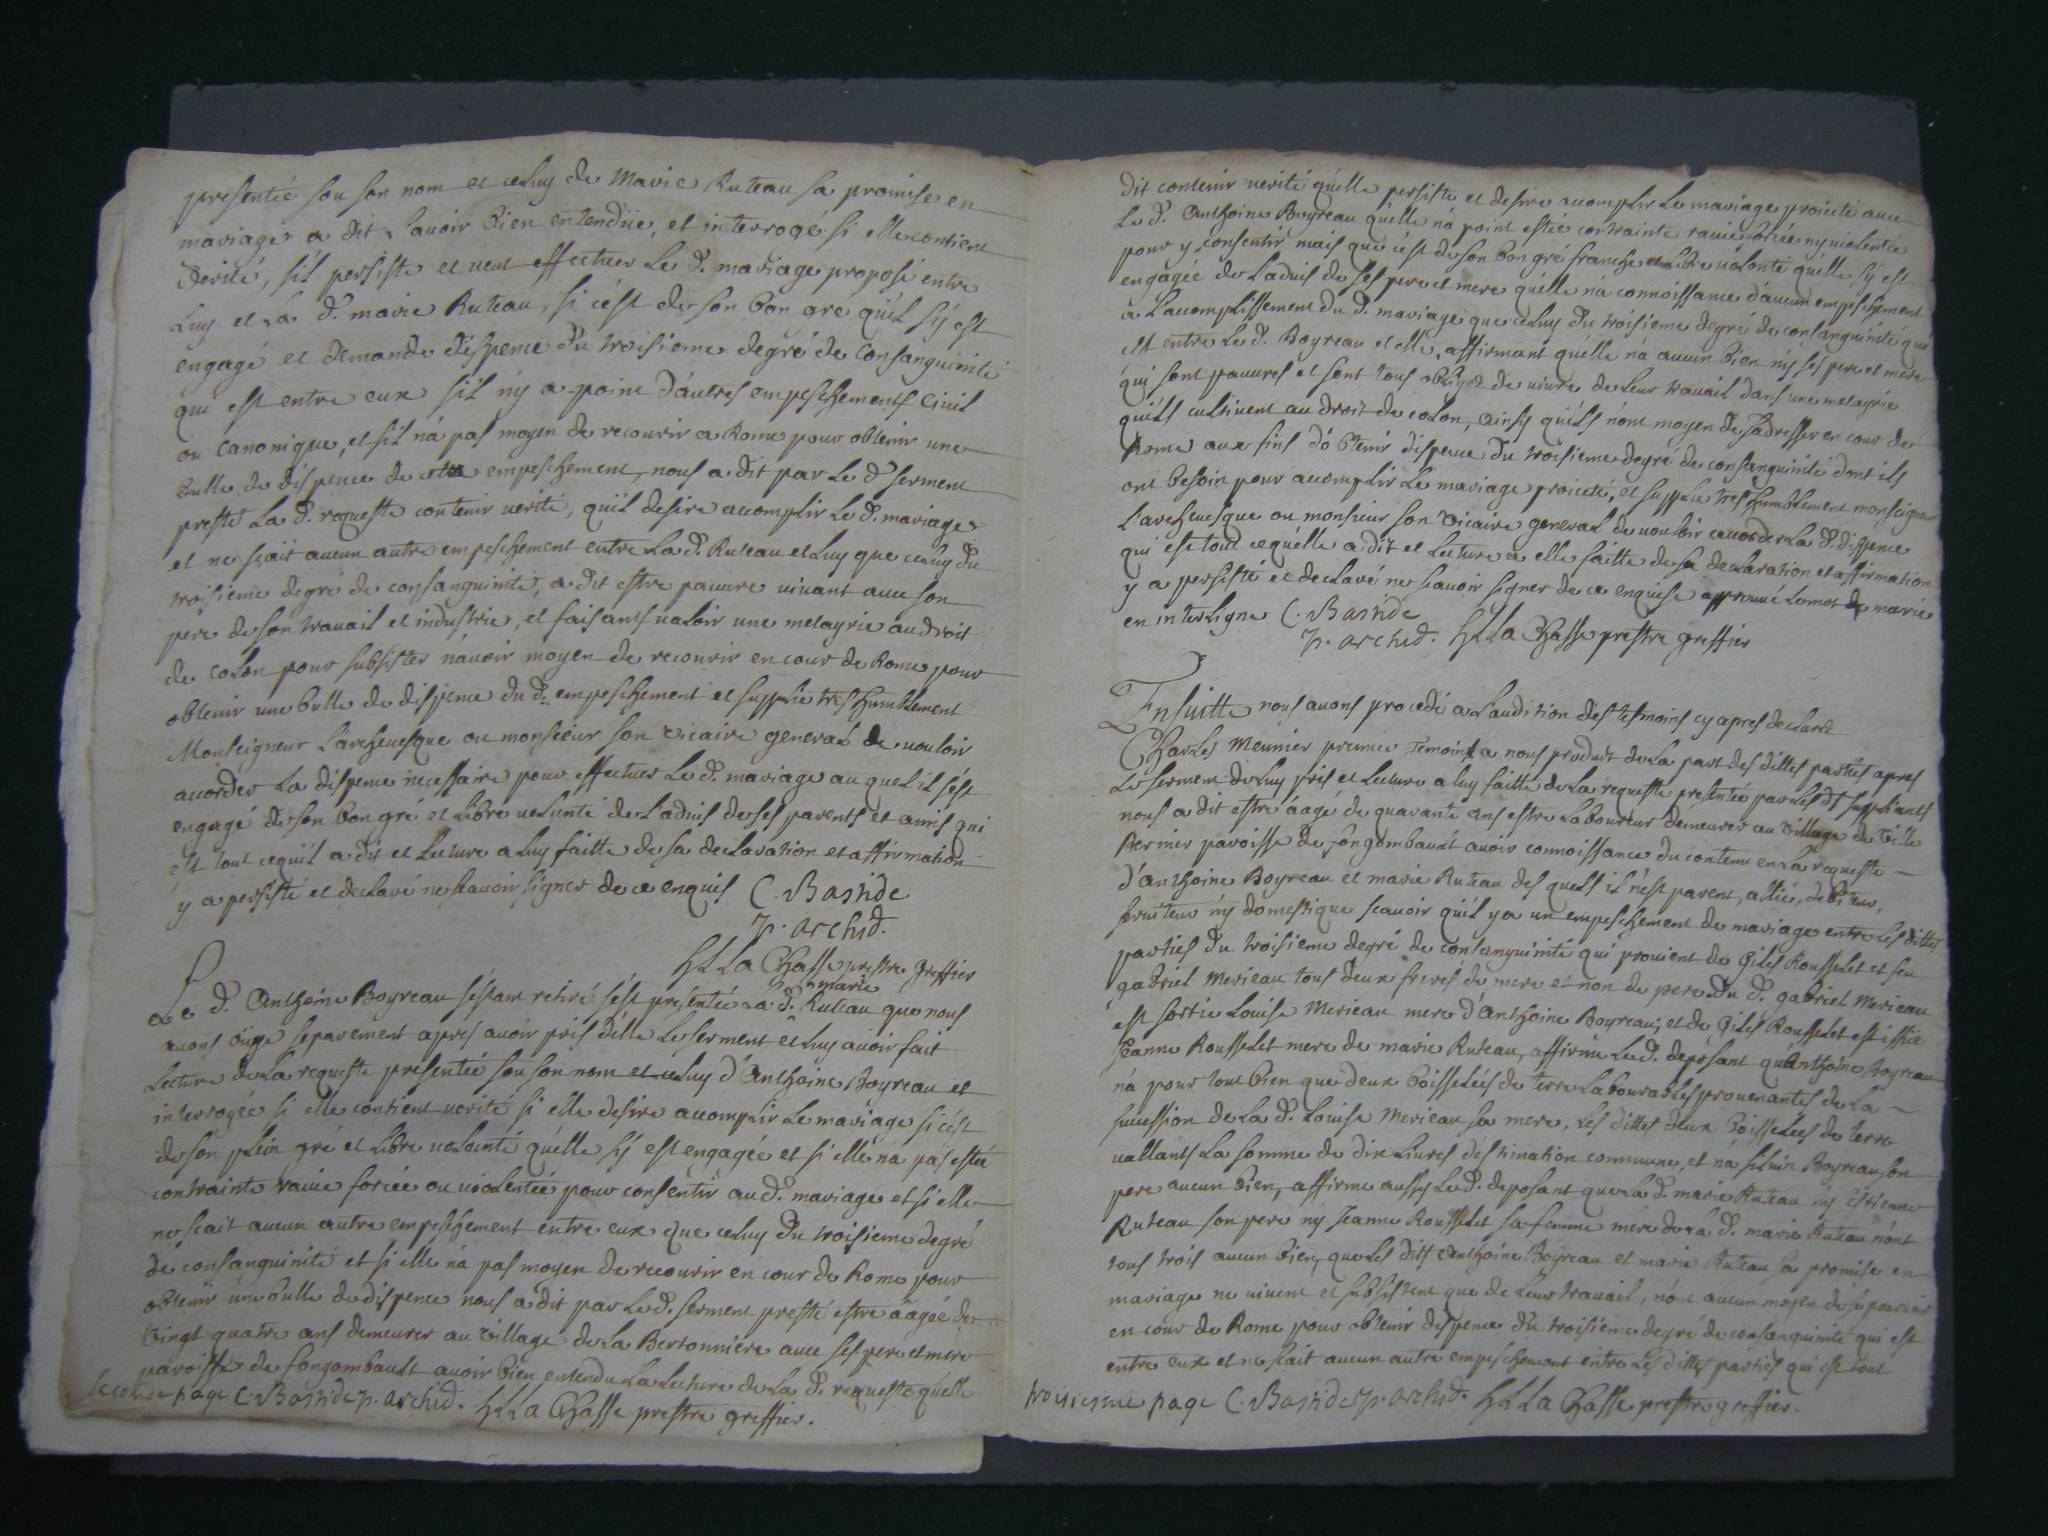 presenteé sou son nom et celuy de Marie Ruteau sa promise en
mariage a dit l'avoir bien entendüe, et interrogé si elle contient
verité, s'il persiste et veut effectuer le d. mariage proposé entre
luy et la d. marie Ruteau, si c'est de son bon gré qu'il s'y est
engagé et demande dispence du troisieme degré de consanguinité
qui est entre eux s'il n'y a point d'autres empeschements civil
ou canonique, et s'il n'a pas moyen de recourir a Rome pour obtenir une
bulle de dispence de cette empeschement, nous a dit par le d serment
presté la d. requeste contenir verité, qu'il desire acomplir le d. mariage
et ne sçait aucun autre empeschement entre la d. Ruteau et luy que celuy du
troisieme degré de consanguinité, a dit estre pauvre vivant avec son
pere de son travail et industrie, et faisants valoir une metayrie au droit
de colon pour subsister n'avoir moyen de recourir en cour de Rome pour
obtenir une bulle de dispence du d. empeschement et supplie tres humblement
Monseigneur l'archevesque ou monsieur son vicaire general de vouloir
accorder la dispence necessaire pour effectuer le d. mariage au quel il s'est
engagé de son bon gré et libre volunté de l'advis de ses parents et amis qui
est tout cequ'il a dit et lecture a luy faitte de sa declaration et affirmation
y a persisté et declaré ne scavoir signer de ce enquis C. Bastide
p. archid.
HL La Chasse prestre greffier
marie
Le d. Anthoine Boyreau s'estant retiré s'est presentée la d. Ruteau que nous
avons ouye separement apres avoir pris d'elle le serment et luy avoir fait
lecture de la requeste presentée sou son nom et celuy d'Anthoine Boyreau et
interrogée si elle contient verité si elle desire acomplir le mariage si c'est
de son plein gré et libre volonté qu'elle s'y est engagée et si elle n'a pas estée
contrainte ravie forcée ou violentée pour consentir au d. mariage et si elle
ne sçait aucun autre empeschement entre eux que celuy du troisieme degré
de consanguinité et si elle n'a pas moyen de recourir en cour de Rome pour
obtenir une bulle de dispence nous a dit par le d. serment presté estre âagée de
vingt quatre ans demeurer au village de la Bertonniere avec ses pere et mere
paroisse de fongombault avoir bien entendu la lecture de la d. requeste qu'elle
seconde page C. Bastide p. archid. HL La Chasse prestre greffier.
dit contenir verité qu'elle persiste et desire acomplir le mariage proietté avec
le d. Anthoine Boyreau qu'elle n'a point estée contrainte ravie forcée ny violentée
pour y consentir mais que c'est de son bon gré franche et libre volonté qu'elle s'y est
engagée de l'advis de ses pere et mere qu'elle n'a connoissance d'aucun empeschement
a l'acomplissement du d. mariage que celuy du troisieme degré de consanguinité qui
est entre le d. Boyreau et elle, affirmant qu'elle n'a aucun bien n'y ses pere et mere
qui sont pauvres et sont tous obligez de vivre de leur travail dans une metayrie
qu'ils cultivent au droit de colon, ainsy qu'ils n'ont moyen de s'adresser en cour de
Rome aux fins d'obtenir dispence du troisieme degré de consanguinité dont ils
ont besoin pour acomplir le mariage proietté, et supplie tres humblement monseigneur
l'archevesque ou monsieur son vicaire general de vouloir accorder la d. dispence
qui est tout cequelle a dit et lecture a elle faitte de sa declaration et affirmation
y a persisté et declaré ne sçavoir signer de ce enquise approuvé le mot de marie
en interligne C. Bastide
p. archid. HL La Chasse prestre greffier
Ensuitte nous avons procedé a l'audition des tesmoins cy apres declarés
Charles Meunier premier temoin a nous produit de la part des dittes parties apres
le serment de luy pris et lecture a luy faitte de la requeste presentée par les ds suppliants
nous a dit estre âagé de quarante ans estre laboureur demeurer au village de
Bernier paroisse de fongombault avoir connoissance du contenu en la requeste
d'Anthoine Boyreau et marie Ruteau des quels il n'est parent, allié, debiteur,
serviteur n'y domestique scavoir qu'il y a un empeschement de mariage entre les dittes
parties du troisieme degré de consanguinité qui provient de Giles Rousselet et feu
gabriel Merieau tous deux freres de mere et non de pere. Du d. gabriel Merieau
est sortie Louise Merieau mere d'Anthoine Boyreau; et de Giles Rousselet est issüe
Jeanne Rousselet mere de marie Ruteau, affirme le d. deposant qu'Anthoine Boyreau
n'a pour tout bien que deux boisselées de terre labourables provenantes de la
succession de la d. Louise Merieau sa mere, les dittes deux boisselées de terre
vallants la somme de dix livres d'estimation commune, et n'a silvin Boyreau son
pere aucun bien, affirme aussy le d. deposant que la d. marie Ruteau ny Estienne
Ruteau son pere ny Jeanne Rousselet sa femme mere de la d. marie Ruteau n'ont
tous trois aucun bien, que les dits Anthoine Boyreau et marie Ruteau sa promise en
mariage ne vivent et subsistent que de leur travail, n'ont aucun moyen de se pourvoir
en cour de Rome pour obtenir dispence du troisieme degré de consanguinité qui est
entre eux et ne sçait aucun autre empeschement entre les dittes parties qui est tout
troisiesme page C. Bastide p. archid. HL La Chasse prestre greffier.